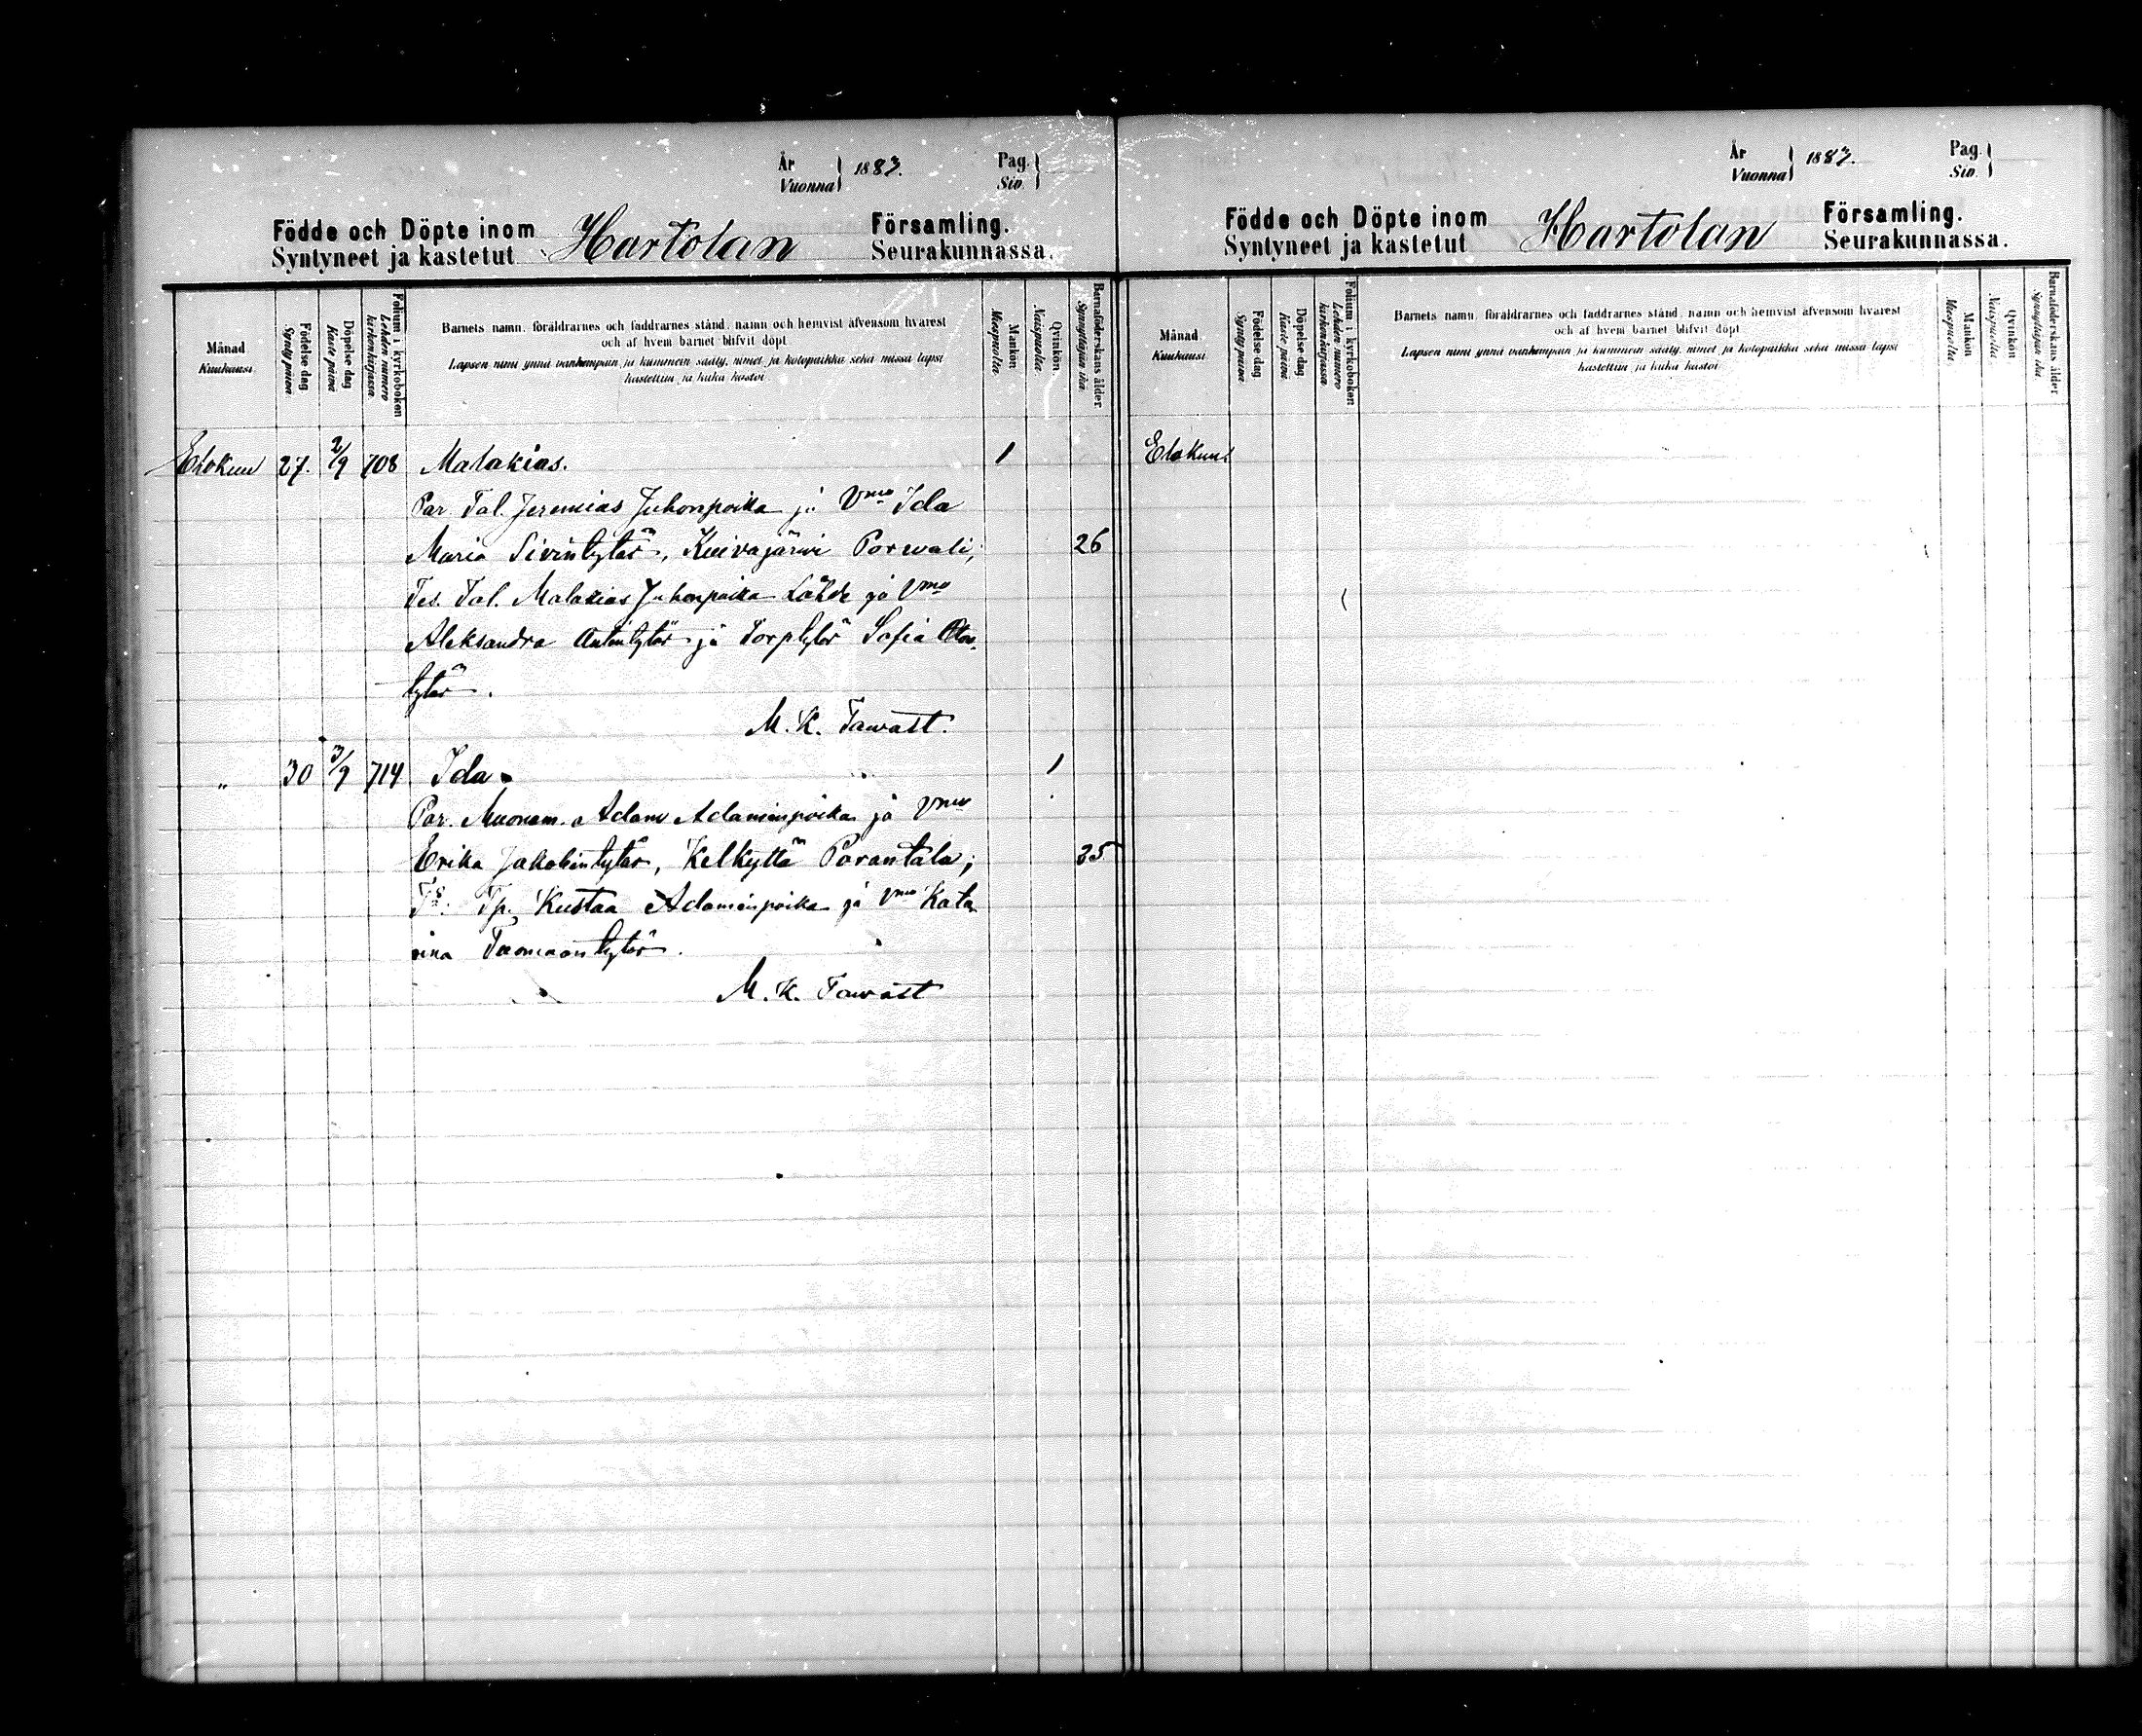 År
Vuonna 1883.
Pag.
Siv.
Födde och Döpte inom
Syntyneet ja kastetut
Hartolan
Församling.
Seurakunnassa.
Månad
Kuukausi
Födelse dag
Synty päivä
Döpelse dag
Kaste päivä
Folium i kyrkoboken
Lehden numero kirkonkirjassa.
Barnets namn, föräldrarnes och faddrarnes stånd, namn och hemvist äfvensom hvarest
och af hvem barnet blifvit döpt
Lapsen nimi ynnä vanhempain ja kummein sääty, nimet ja kotopaikka sekä missä lapsi
kastettiin ja kuka kastoi
Mankön
Miespuolia
Qvinkön
Naispuolia
Barnaföderskans ålder
Synnyttäjän ikä
Elokuu 27. 2/9 708 Malakias. 1
Par. Tal. Jeremias Juhonpoika ja Vmo Ida
Maria Sivintytär, Kuivajärvi Porvali; 26
Tes. Tal. Malakias Juhonpoika Lähde ja Vmo
Aleksandra Antintytär ja Torptytär Sofia
tytär.
M. K. Tawast.
„ 30 3/9 714 Ida. 1
Par. Muonam. Adam Adaminpoika ja Vmo
Erika Jakobintytär, Kelkyttä Porantala; 35
Ts. Tp. Kustaa Adaminpoika ja Vmo Kata
rina Tuomaantytär.
M. K. Tawast
År
Vuonna 1883.
Pag.
Siv.
Födde och Döpte inom
Syntyneet ja kastetut
Hartolan
Församling.
Seurakunnassa.
Månad
Kuukausi
Födelse dag
Synty päivä
Döpelse dag
Kaste päivä
Folium i kyrkoboken
Lehden numero kirkonkirjassa.
Barnets namn, föräldrarnes och faddrarnes stånd, namn och hemvist äfvensom hvarest
och af hvem barnet blifvit döpt
Lapsen nimi ynnä vanhempain ja kummein sääty, nimet ja kotopaikka sekä missä lapsi
kastettiin ja kuka kastoi
Mankön
Miespuolia
Qvinkön
Naispuolia
Barnaföderskans ålder
Synnyttäjän ikä
Elokuu